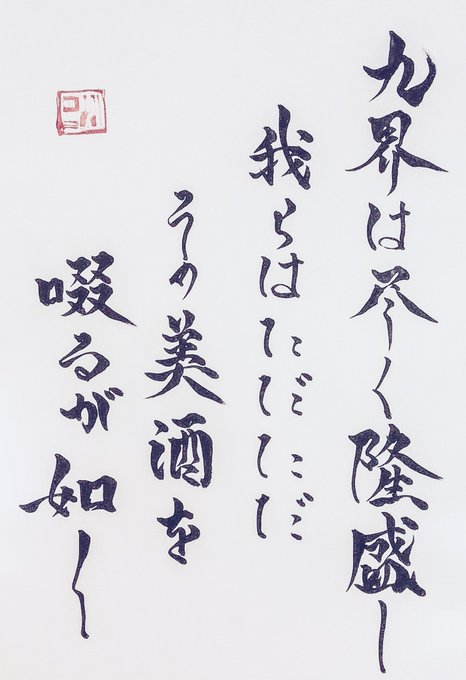 九界は尽く隆盛し
我らはただただ
その美酒を
啜るが如し